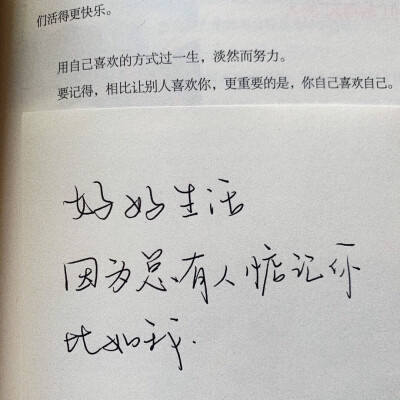 们活得更快乐。
用自己喜欢的方式过一生，淡然而努力。
要记得，相比让别人喜欢你，更重要的是，你自己喜欢自己。
好好生活
因为总有人惦记你
比如我.